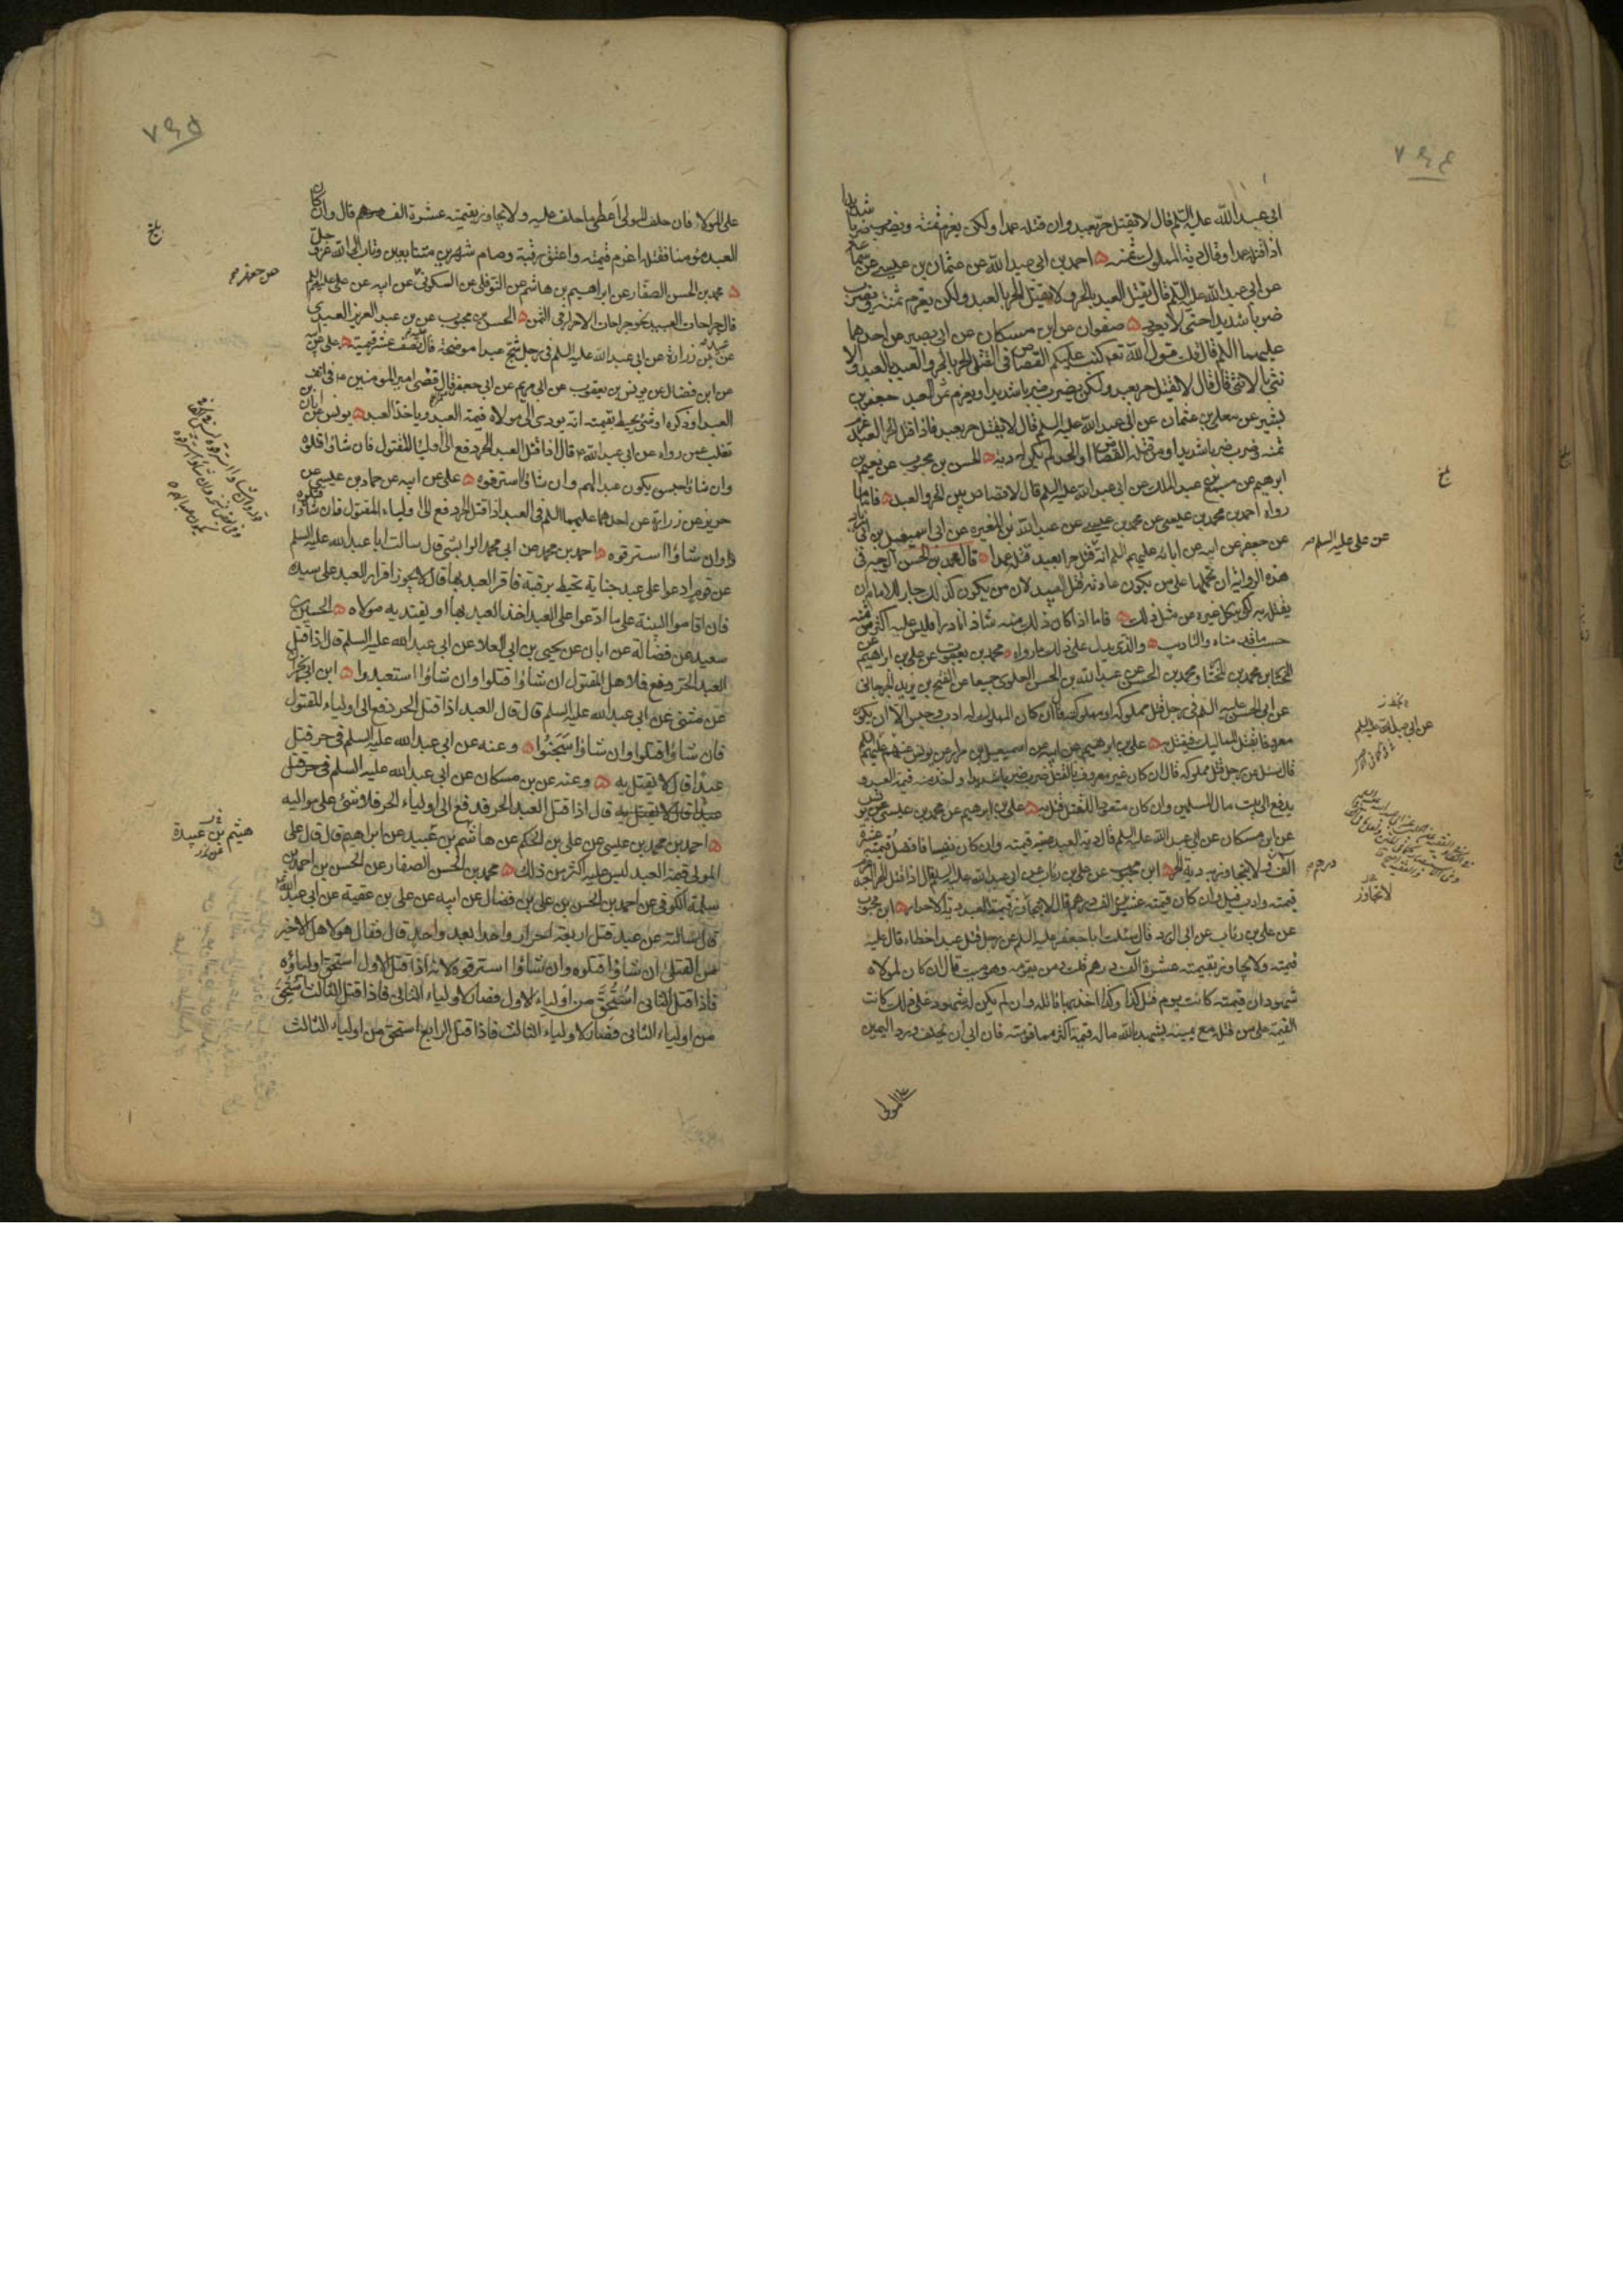 ٧٩٤
ابى عبد الله عليه السلم قال لا يقتل حر بعبد وان قتله عمدا ولكن يغرم ثمنه ويضرب ضربا شديدا
اذا قتله عمدا وقال دية المملوك ثمنه ۵ احمد بن ابى عبد الله عن عثمان بن عيسى عن سماعة
عن ابى عبد الله عليه السلم قال يقتل العبد بالحر ولا يقتل الحر بالعبد ولكن يغرم ثمنه ويضرب
ضربا شديدا حتى لا يعود ۵ صفوان عن ابن مسكان عن ابى بصير عن احدهما
عليهما السلم قال قلت قول الله تعالى كتب عليكم القصاص فى القتلى الحر بالحر والعبد بالعبد والا
نثى بالانثى قال قال لا يقتل حر بعبد ولكن يضرب ضربا شديدا ويغرم ثمن العبد جعفر بن
بشير عن معلى بن عثمان عن ابى عبد الله عليه السلم قال لا يقتل حر بعبد فاذا قتل الحر العبد غرم
ثمنه وضرب ضربا شديدا ومن قتله القصاص او الحد لم يكن له دية ۵ الحسن بن محبوب عن نعيم بن
ابرهيم عن مسمع بن عبد الملك عن ابى عبد الله عليه السلم قال لا قصاص بين الحر والعبد ۵ فاما ما
رواه احمد بن محمد بن عيسى عن محمد بن عيسى عن عبد الله بن المغيرة عن اسمعيل بن ابى زياد
عن جعفر عن ابيه عن ابائه عليهم السلم انه قتل حرا بعبد قتله عمدا ۵ قال محمد بن الحسن الوجه فى
هذه الرواية ان نحملها على من يكون عادته قتل العبيد لان من يكون كذلك جاز للامام ان
يقتله به لكى ينكل غيره عن مثل ذلك ۵ فاما اذا كان ذلك منه شاذا نادرا فليس عليه اكثر من ثمنه
حسب ما قدمناه والتاديب ۵ والذى يدل على ذلك ما رواه ۵ محمد بن يعقوب عن على بن ابراهيم عن
المختار بن محمد بن المختار ومحمد بن الحسن عن عبد الله بن الحسن العلوى جميعا عن الفتح بن يزيد الجرجانى
عن ابى الحسن عليه السلم فى رجل قتل مملوكه او مملوكته قال ان كان المملوك له ادب وحبس الا ان يكون
معروفا بقتل المماليك فيقتل به ۵ على بن ابرهيم عن ابيه عن اسمعيل بن مرار عن يونس عنهم عليهم السلم
قال سئل عن رجل قتل مملوكه قال ان كان غير معروف بالقتل ضرب ضربا شديدا واخذ منه قيمة العبد و
يدفع الى بيت مال المسلمين وان كان متعودا للقتل قتل به ۵ على بن ابرهيم عن محمد بن عيسى عن يونس
عن ابن مسكان عن ابى عبد الله عليه السلم قال دية العبد قيمته وان كان نفيسا فافضل قيمته عشرة
الف ولا يتجاوز به دية الحر ۵ ابن محبوب عن على بن رئاب عن ابى عبد الله عليه السلم قال اذا قتل الحر العبد غرم
قيمته وادب قيل وان كان قيمته عشرين الف درهم قال لا يتجاوز بقيمة العبد دية الاحرار ۵ ابن محبوب
عن على بن رئاب عن ابى الورد قال سئلت ابا جعفر عليه السلم عن رجل قتل عبدا خطاء قال عليه
قيمته ولا يجاوز بقيمته عشرة الف درهم قلت ومن يقومه وهو ميت قال ان كان لمولاه
شهود ان قيمته كانت يوم قتل كذا وكذا اخذ بها قاتله وان لم يكن له شهود على ذلك كانت
القيمة على من قتله مع يمينه يشهد بالله ما له قيمة اكثر مما قومته فان ابى ان يحلف ورد اليمين
على المولى
بلغ
عن على عليه السلم
عن ابى عبد الله عليه السلم
درهم
لا تجاوز
٧٩٥
على المولا فان حلف المولى اعطى ما حلف عليه ولا يجاوز بقيمته عشرة الف درهم قال وان كان
العبد مؤمنا فقتله اغرم قيمته واعتق رقبة وصام شهرين متتابعين وتاب الى الله عز وجل
۵ محمد بن الحسن الصفار عن ابراهيم بن هاشم عن النوفلى عن السكونى عن ابيه عن على عليه السلم
قال جراحات العبيد نحو جراحات الاحرار فى الثمن ۵ الحسن بن محبوب عن بن عبد العزيز العبدى
عن عبيد بن زرارة عن ابى عبد الله عليه السلم فى رجل شج عبدا موضحة قال نصف عشر قيمته ۵ على عن ابيه
عن ابن فضال عن يونس بن يعقوب عن ابى مريم عن ابى جعفر قال قضى امير المومنين ع فى انف
العبد او ذكره او شئ يحيط بقيمته انه يودى الى مولاه قيمة العبد وياخذ العبد ۵ يونس عن ابان بن
تغلب عمن رواه عن ابى عبد الله ع قال اذا قتل العبد الحر دفع الى اولياء المقتول فان شاؤا قتلوه
وان شاؤا حبسوه يكون عبدا لهم وان شاؤا استرقوه ۵ على عن ابيه عن حماد بن عيسى عن
حريز عن زرارة عن احدهما عليهما السلم فى العبد اذا قتل الحر دفع الى اولياء المقتول فان شاؤا قتلوه
وان شاؤا استرقوه ۵ احمد بن محمد عن ابى محمد الوابشى قال سالت ابا عبد الله عليه السلم
عن قوم ادعوا على عبد جناية تحيط برقبة فاقر العبد بها قال لا يجوز اقرار العبد على سيده
فان اقاموا البينة على ما ادعوا على العبد اخذ العبد بها او يفتديه مولاه ۵ الحسين بن
سعيد عن فضالة عن ابان عن يحيى بن ابى العلا عن ابى عبد الله عليه السلم قال اذا قتل
العبد الحر دفع فلاهل المقتول ان شاؤا قتلوا وان شاؤا استعبدوا ۵ ابن ابى نجران
عن مثنى عن ابى عبد الله عليه السلم قال قال العبد اذا قتل الحر دفع الى اولياء المقتول
فان شاؤا قتلوا وان شاؤا سجنوا ۵ وعنه عن ابى عبد الله عليه السلم فى حر قتل
عبدا قال لا يقتل به ۵ وعنه عن بن مسكان عن ابى عبد الله عليه السلم فى حر قتل
عبدا قال لا يقتل به قال اذا قتل العبد الحر فدفع الى اولياء الحر فلا شئ على مواليه
۵ احمد بن محمد بن عيسى عن على بن الحكم عن هاشم بن عبيد عن ابراهيم قال قال على
المولى قيمة العبد ليس عليه اكثر من ذلك ۵ محمد بن الحسن الصفار عن الحسن بن احمد بن
سلمة الكوفى عن احمد بن الحسن بن على بن فضال عن ابيه عن على بن عقبة عن ابى عبد الله
قال سالته عن عبد قتل اربعة احرار واحدا بعد واحد قال فقال هو لاهل الاخير
من القتلى ان شاؤا قتلوه وان شاؤا استرقوه لانه اذا قتل الاول استحق اولياؤه
فاذا قتل الثانى استحق من اولياء الاول فصار لاولياء الثانى فاذا قتل الثالث استحق
من اولياء الثانى فصار لاولياء الثالث فاذا قتل الرابع استحق من اولياء الثالث
بلغ
عن جعفر
هيثم بن عبيدة